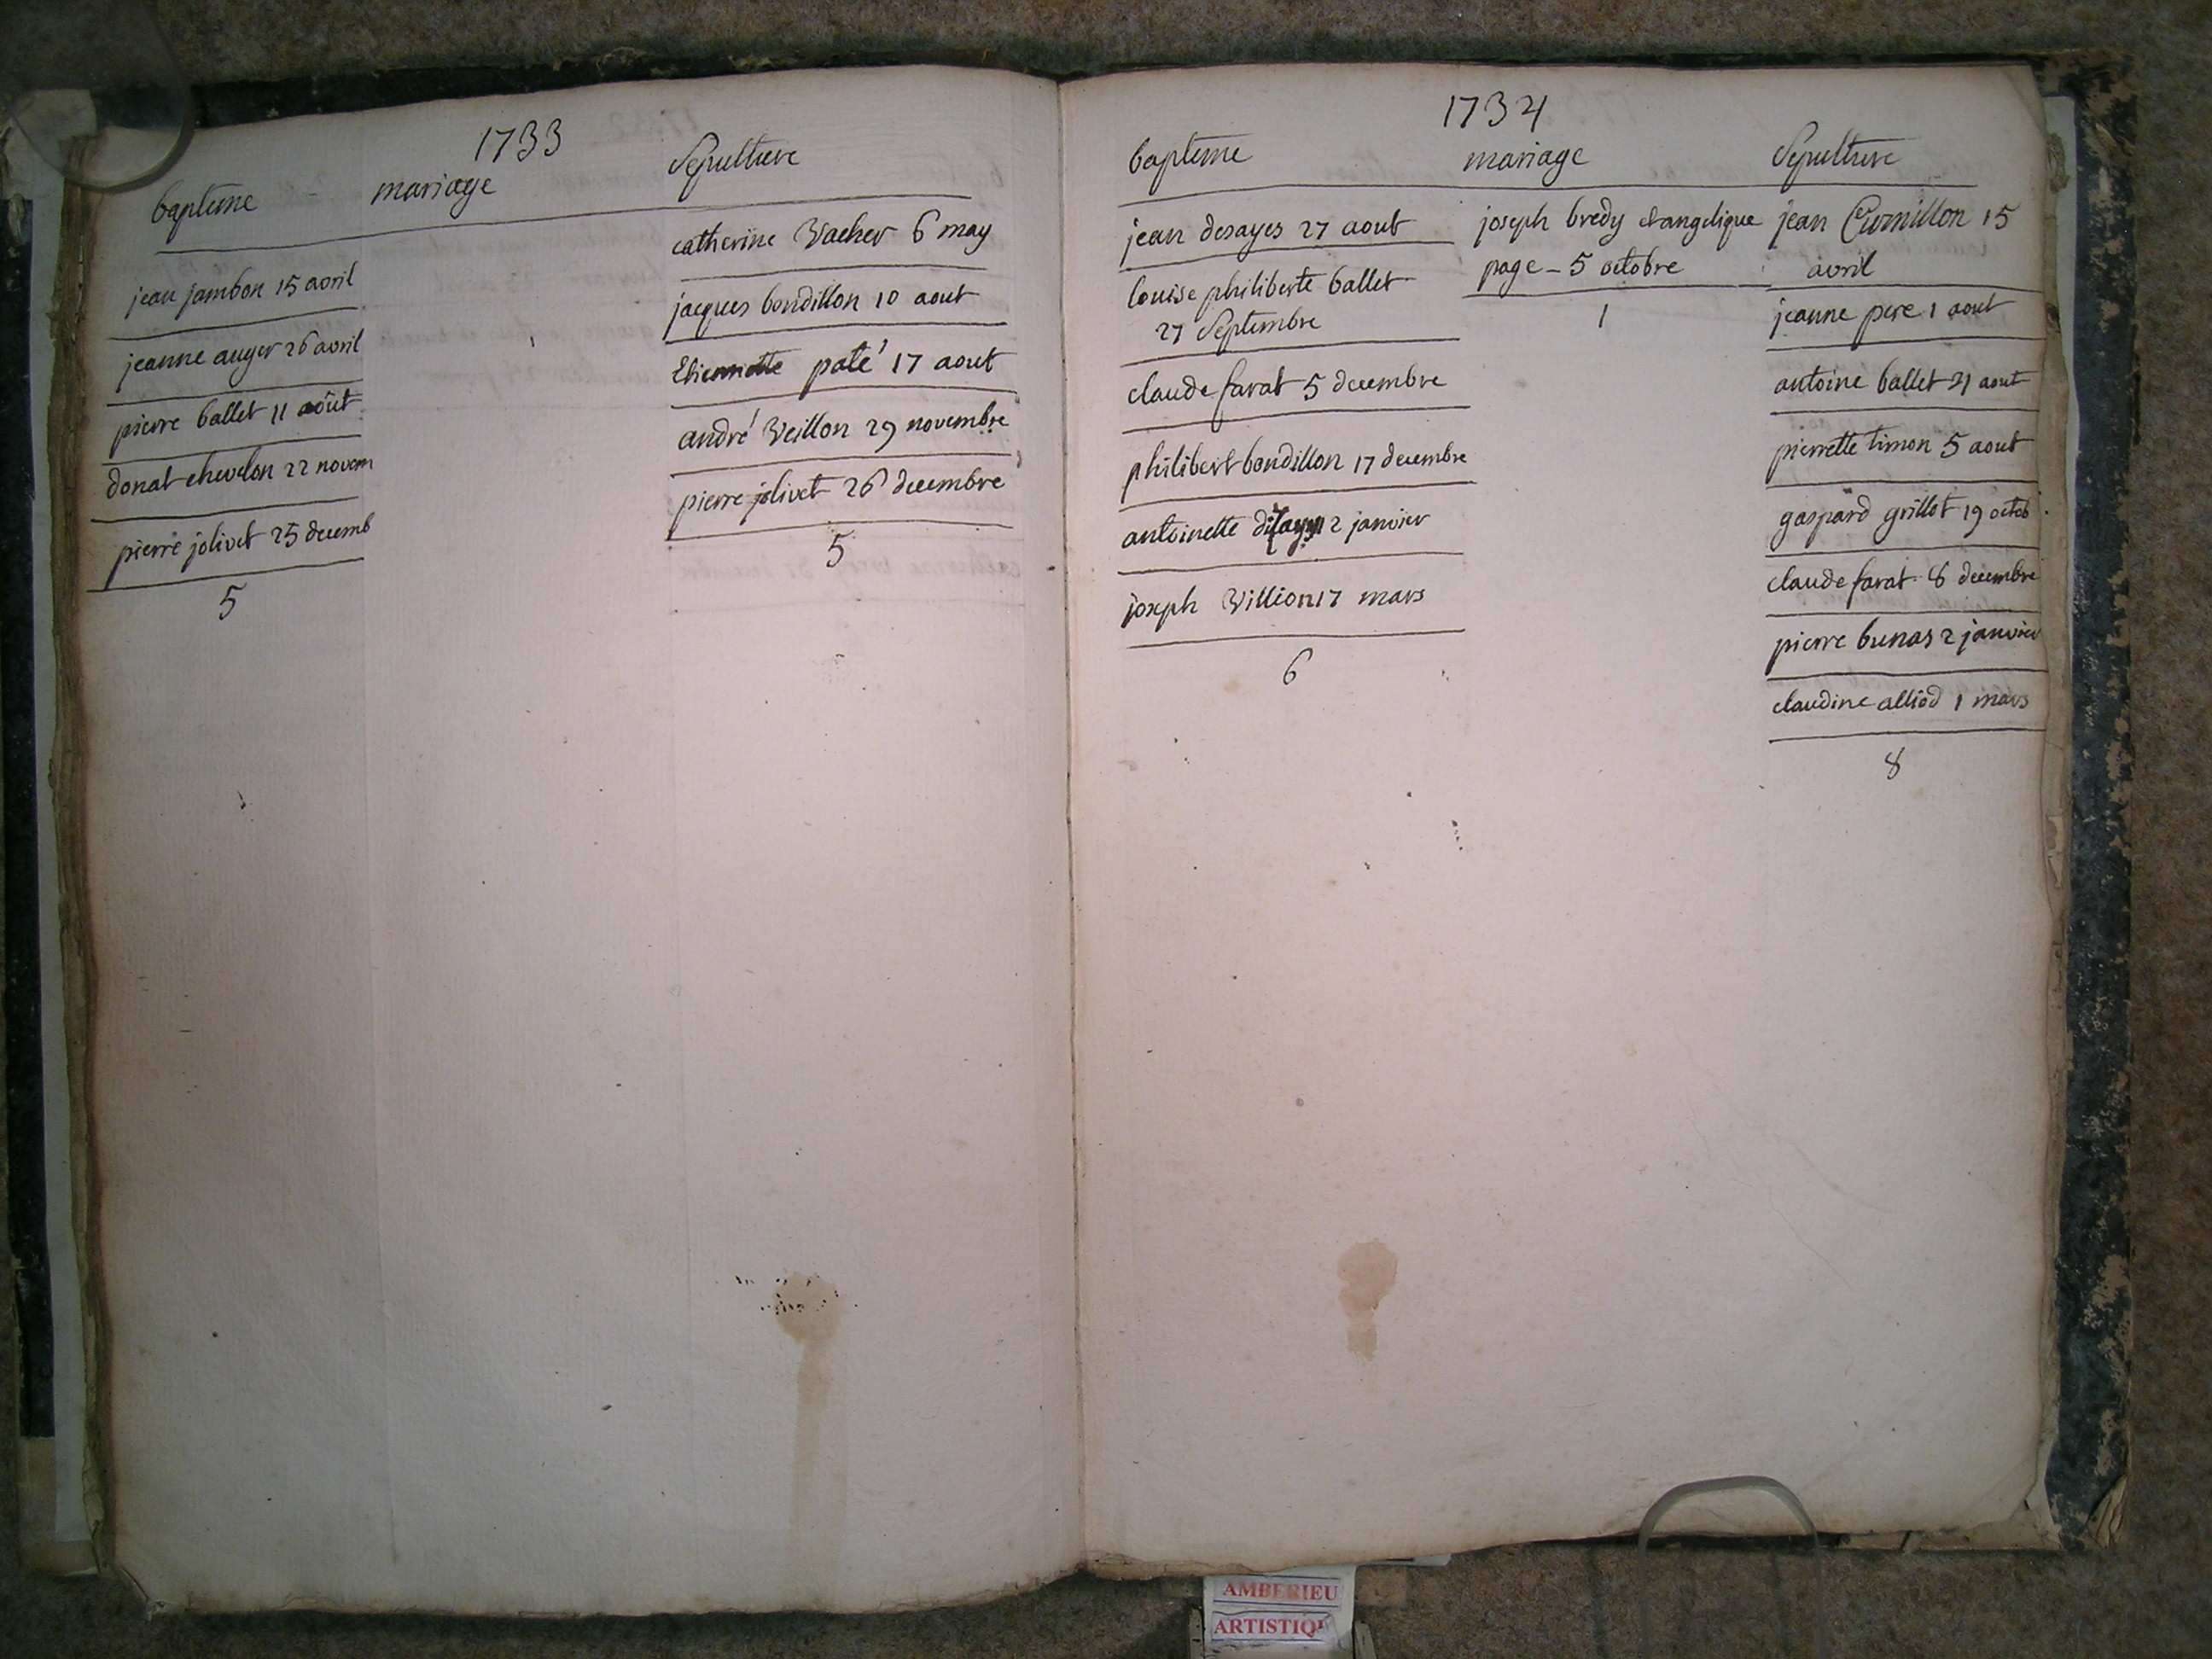 1733
bapteme mariage Sepulture
jean jambon 15 avril
jeanne auger 26 avril
pierre ballet 11 aout
donat chevelon 22 novem
pierre jolivet 25 decemb
5
catherine Vacher 6 may
jacques bondillon 10 aout
Etiennette paté 17 aout
andré Veillon 29 novembre
pierre jolivet 26 decembre
5
1734
bapteme mariage Sepulture
jean desayes 27 aout
louise philiberte ballet
27 Septembre
claude farat 5 decembre
philibert bondillon 17 decembre
antoinette 2 janvier
joseph Villion 17 mars
6
joseph bredy et angelique
page - 5 octobre
1
jean Cornillon 15
avril
jeanne pere 1 aout
antoine ballet 21 aout
pierrette timon 5 aout
gaspard grillot 19 octob
claude farat 8 decembre
pierre bunas 2 janvier
claudine alliod 1 mars
8
AMBERIEU
ARTISTIQU